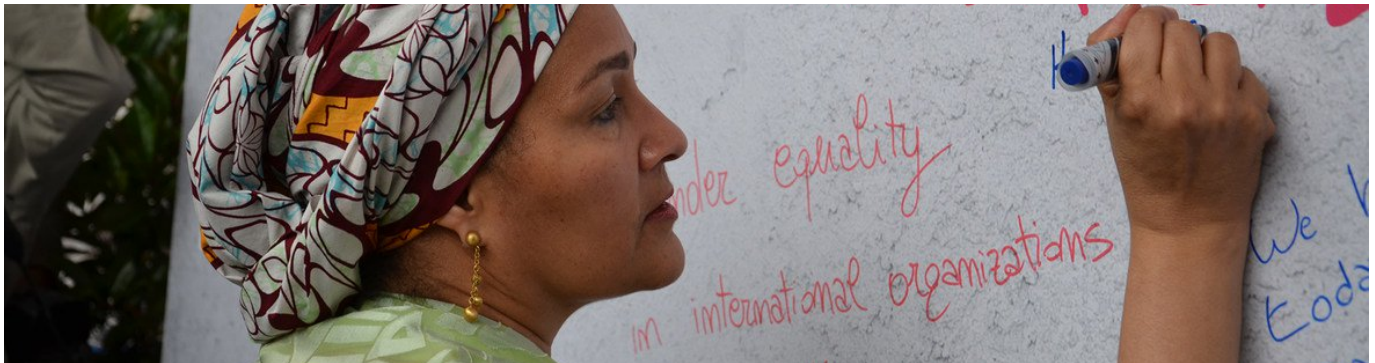 nder equality
in international organizations
We
toda